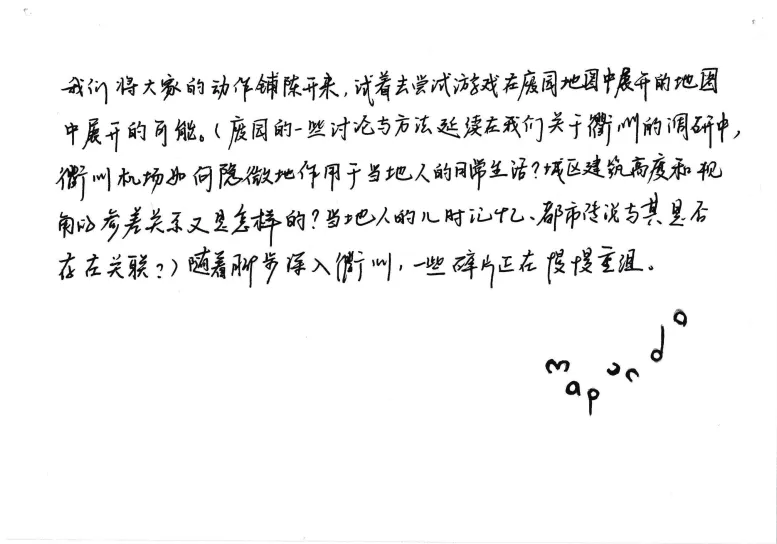 我们将大家的动作铺陈开来，试着去尝试游戏在废园地图中展开的地图
中展开的可能。（废园的一些讨论与方法延续在我们关于衢州的调研中，
衢州机场如何隐微地作用于当地人的日常生活？城区建筑高度和视
角的参差关系又是怎样的？当地人的儿时记忆、都市传说与其是否
存在关联？）随着脚步深入衢州，一些碎片正在慢慢重组。
mapundo